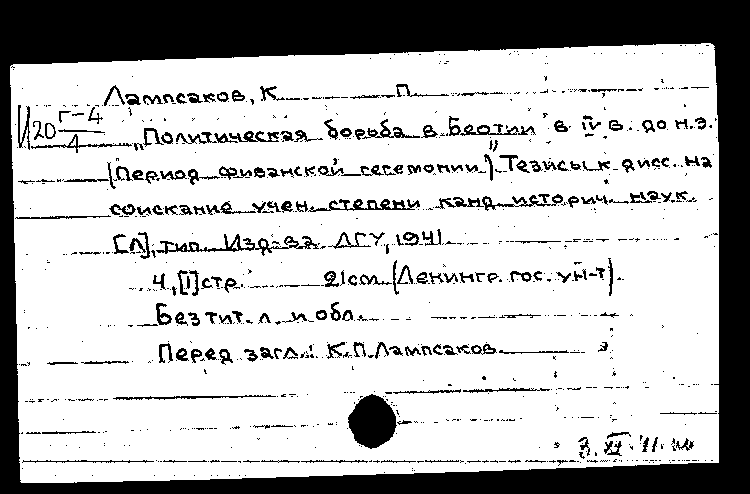 Лампсаков, К. П.
Г-4
120
4
„Политическая борьба в Беотии в IV в. до н.э.
(Период фиванской гегемонии)". Тезисы к дисс. на
соискание учен. степени канд. историч. наук.
[Л], тип. Изд-ва ЛГУ, 1941.
4, [1] стр. 21 см. (Ленингр. гос. ун-т).
Без тит. л. и обл.
Перед загл.: К.П. Лампсаков.